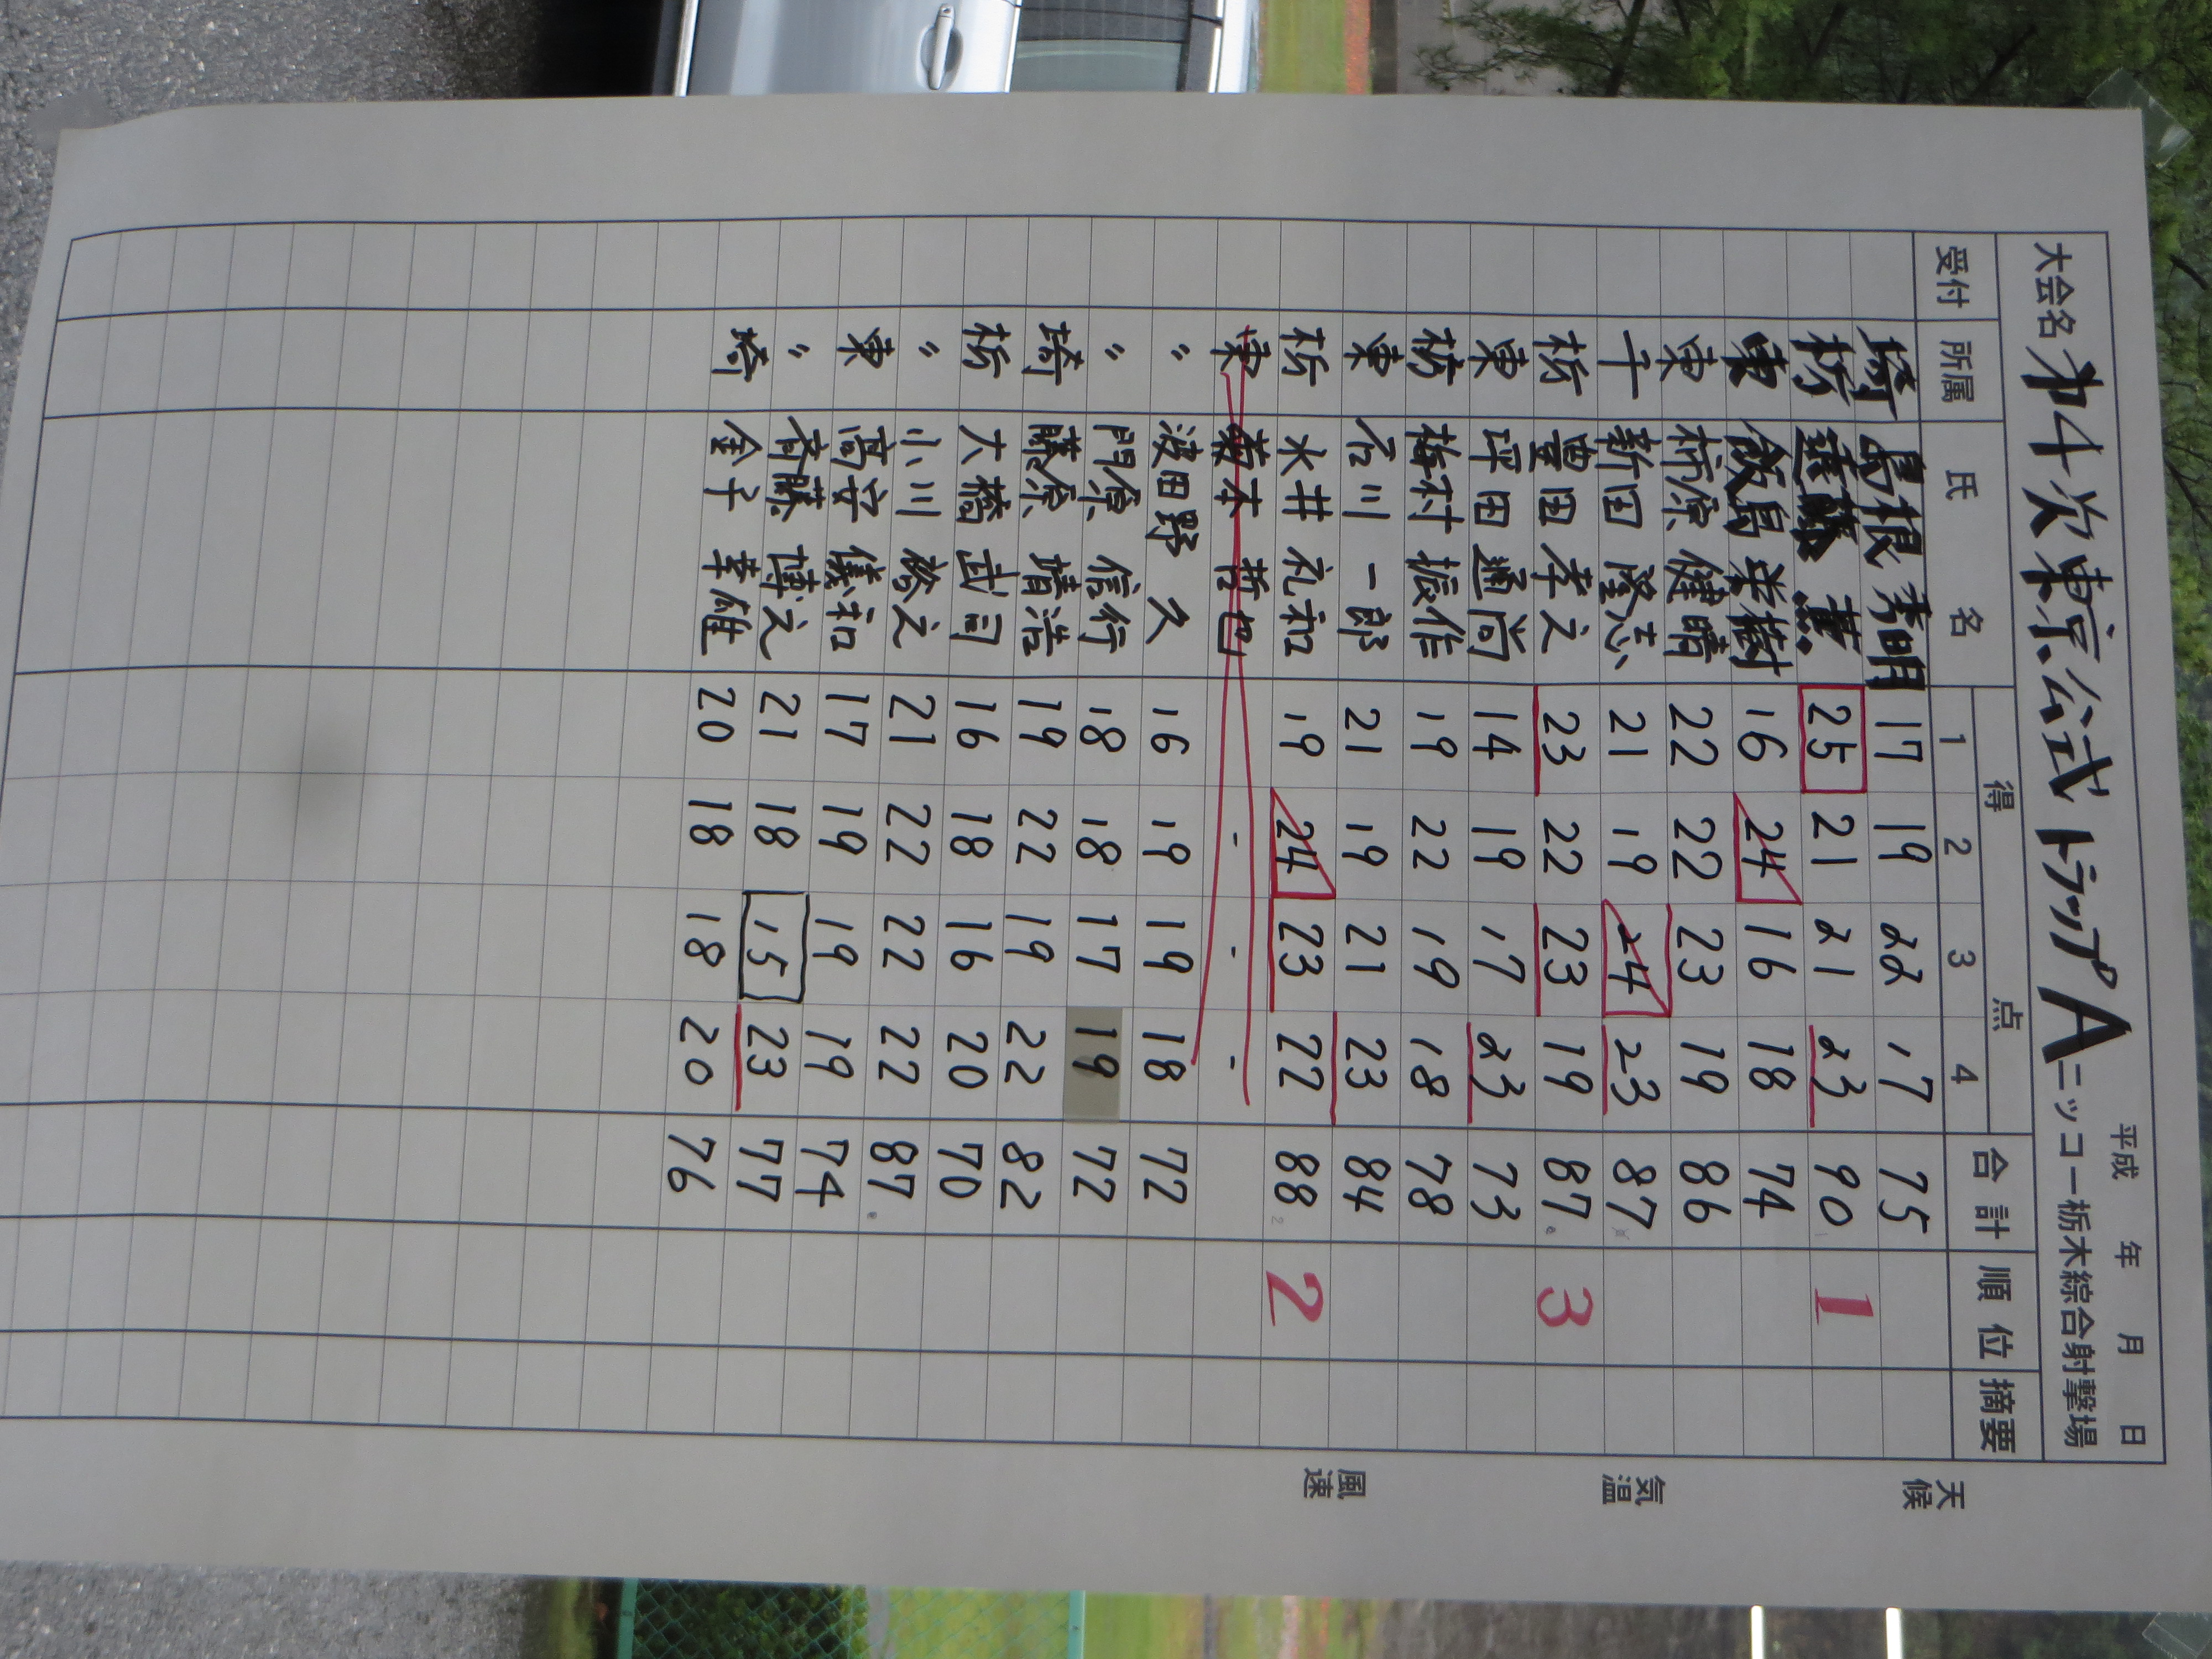 平成 年 月 日
大会名 第4次東京公式トラップA ニッコー栃木綜合射撃場
受付 所属 氏名 得点 合計 順位 摘要
1 2 3 4
埼 島根 秀明 17 19 22 17 75
栃 遠藤 薫 25 21 21 23 90 1
東 飯島 栄樹 16 24 16 18 74
東 柿原 健晴 22 22 23 19 86
千 新田 隆志 21 19 24 23 87
栃 豊田 孝之 23 22 23 19 87 3
東 坪田 通尚 14 19 17 23 73
栃 梅村 振作 19 22 19 18 78
東 石川 一郎 21 19 21 23 84
栃 水井 礼和 19 24 23 22 88 2
東 菊本 哲也 - - -
〃 波田野 久 16 19 19 18 72
〃 門原 信行 18 18 17 19 72
埼 藤原 靖浩 19 22 19 22 82
栃 大橋 武司 16 18 16 20 70
〃 小川 裕之 21 22 22 22 87
東 高安 儀和 17 19 19 19 74
〃 斉藤 博之 21 18 15 23 77
埼 金子 幸雄 20 18 18 20 76
天候
気温
風速